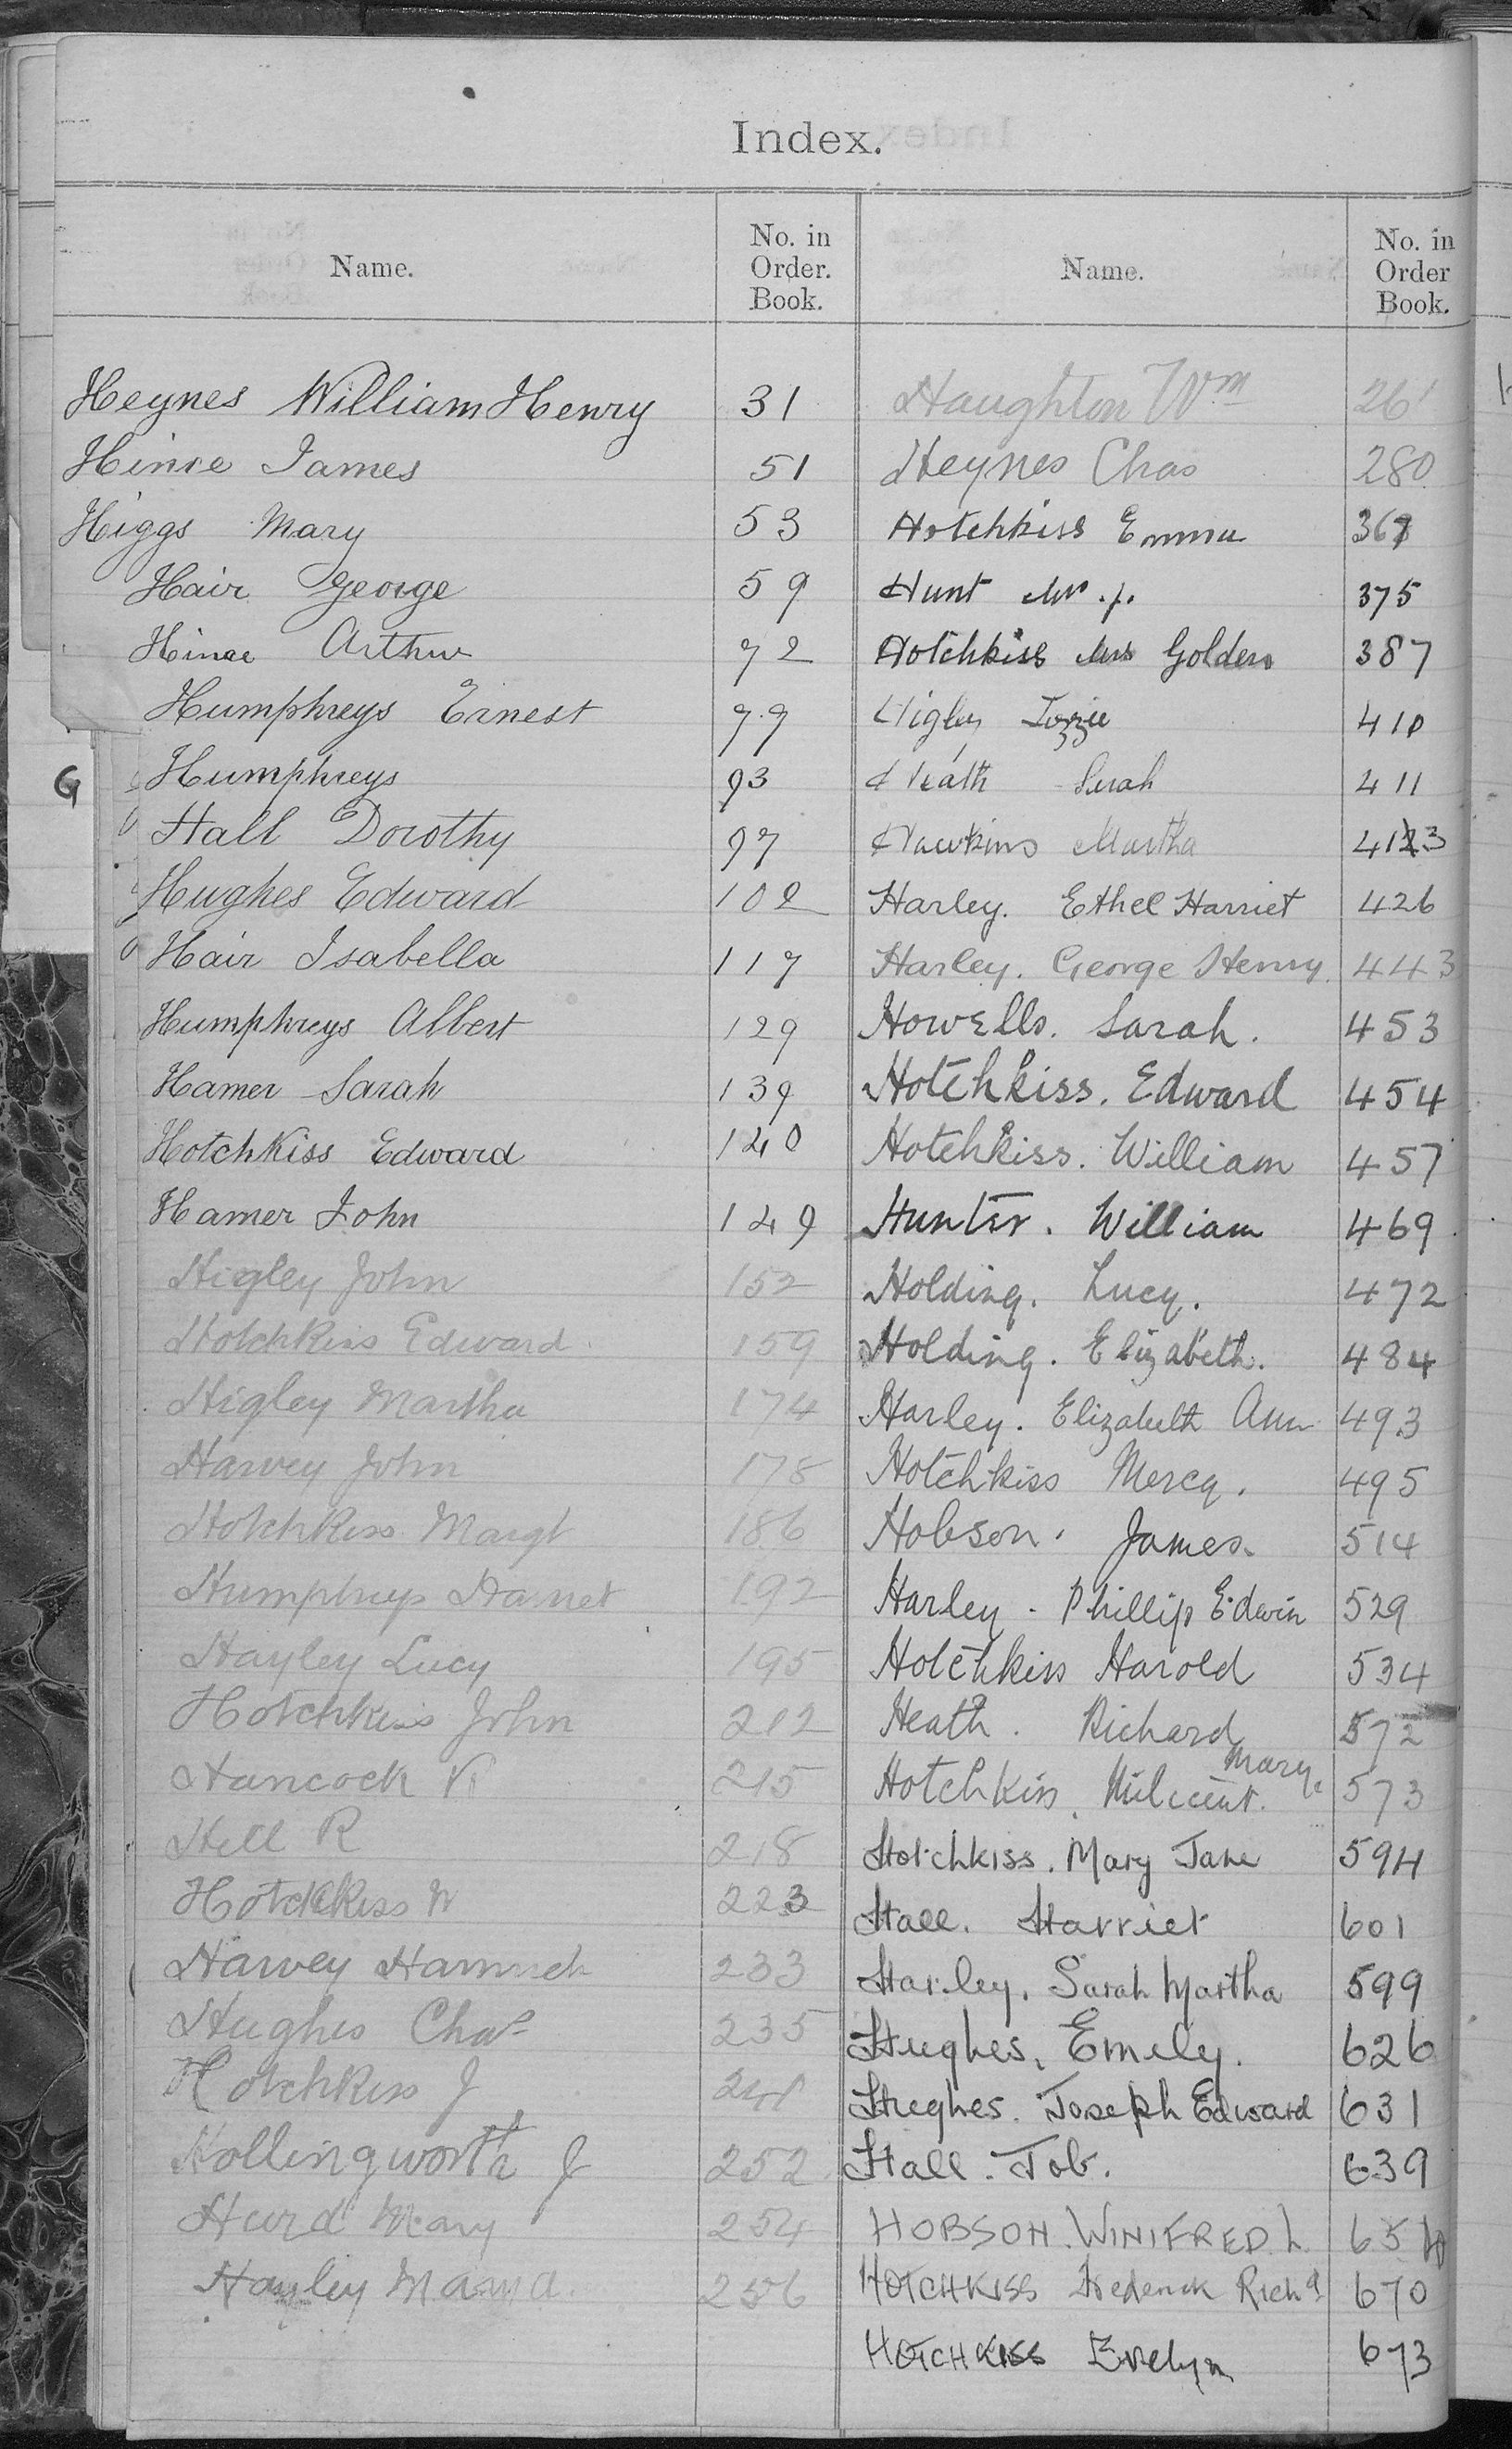 Index.
Name. No. in Order. Book.
Heynes William Henry 31
Hince James 51
Higgs Mary 53
Hair George 59
Hince Arthur 72
Humphreys Ernest 79
Humphreys 93
G
Hall Dorothy 97
Hughes Edward 102
Hair Isabella 117
Humphreys Albert 129
Hamer Sarah 139
Hotchkiss Edward 140
Hamer John 149
Higley John 152
Hotchkiss Edward 159
Higley Martha 174
Harvey John 178
Hotchkiss Margt 186
Humphreys Harriet 192
Hayley Lucy 195
Hotchkiss John 212
Hancock 215
Hill R 218
Hotchkiss W 223
Harvey Hannah 233
Hughes Chas 235
Hotchkiss J 241
Hollingworth J 252
Hurd Mary 254
Hayley Maria 256
Name. No. in Order Book.
Haughton Wm 261
Heynes Chas 280
Hotchkiss Emma
Hunt 375
Hotchkiss Mrs Golden 387
Higley 410
Heath Sarah 411
Hawkins Martha 413
Harley. Ethel Harriet 426
Harley. George Henry. 443
Howells. Sarah. 453
Hotchkiss. Edward 454
Hotchkiss. William 457
Hunter. William 469
Holding. Lucy. 472
Holding. Elizabeth. 484
Harley. Elizabeth Ann 493
Hotchkiss Mercy. 495
Hobson. James. 514
Harley. Phillip Edwin 529
Hotchkiss Harold 534
Heath. Richard 572
Hotchkiss, Milicent. Mary. 573
Hotchkiss. Mary Jane 594
Hall. Harriet 601
Harley. Sarah Martha 599
Hughes. Emily. 626
Hughes. Joseph Edward 631
Hall. Job. 639
HOBSON. WINIFRED. L.
HOTCHKISS Frederick Richd 670
HOTCHKISS Evelyn 673